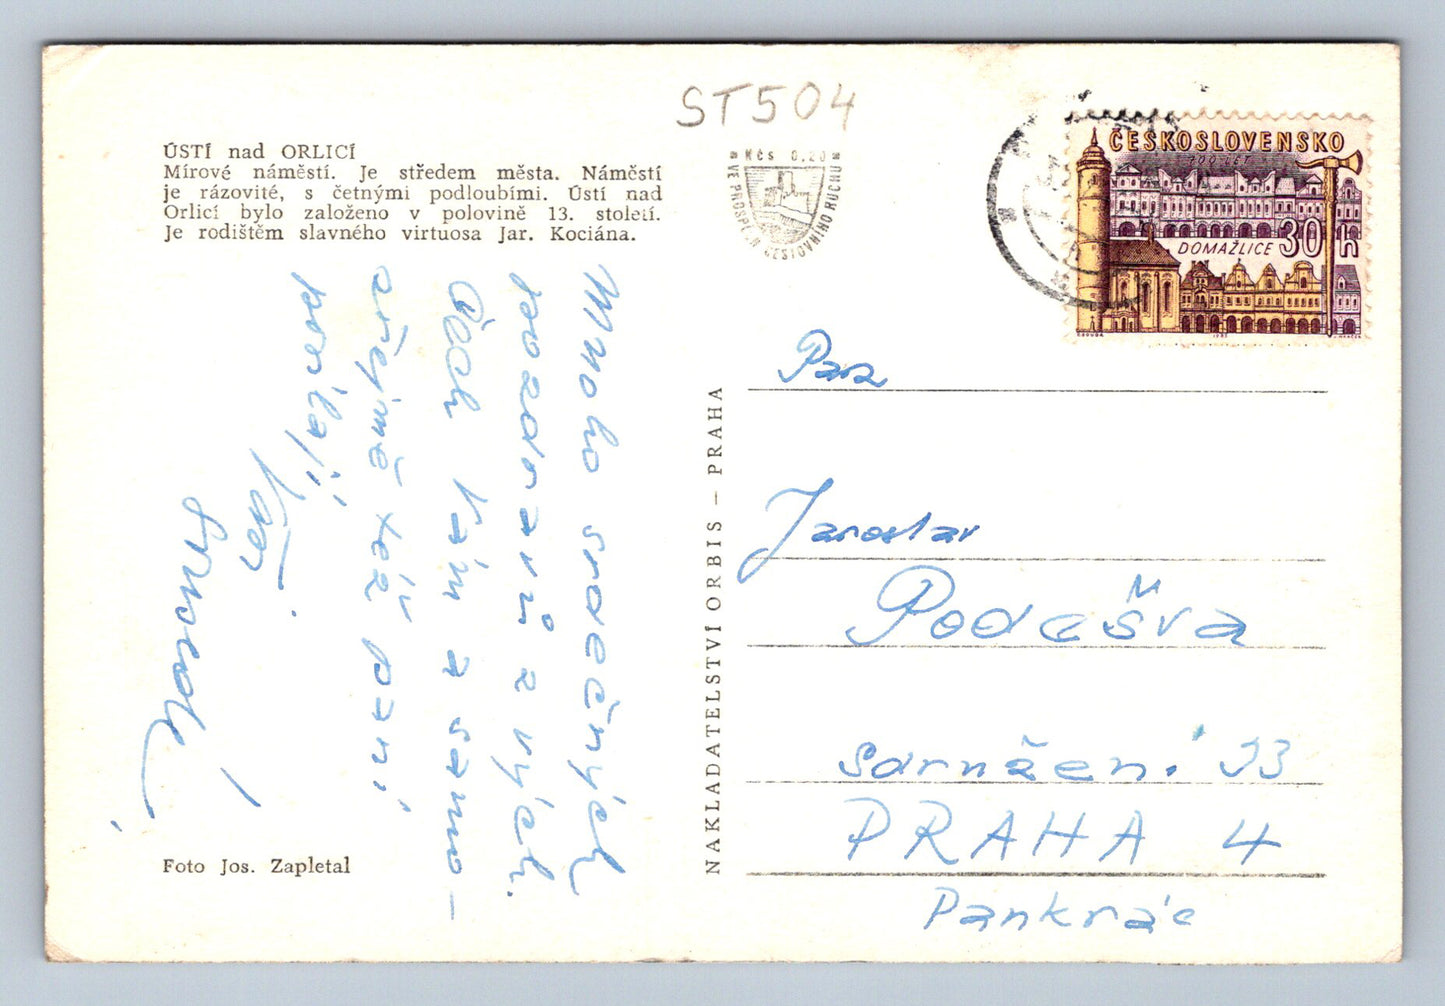 ST504
ÚSTÍ nad ORLICÍ
Mírové náměstí. Je středem města. Náměstí
je rázovité, s četnými podloubími. Ústí nad
Orlicí bylo založeno v polovině 13. století.
Je rodištěm slavného virtuosa Jar. Kociána.
Kčs 0,20
VE PROSPĚCH CESTOVNÍHO RUCHU
ČESKOSLOVENSKO
700 LET
DOMAŽLICE 30 h
Mnoho srdečných
pozdravů z vých.
Čech Vám a samo-
zřejmě též paní
posílají
Vaši
!
Foto Jos. Zapletal
NAKLADATELSTVÍ ORBIS – PRAHA
Pan
Jaroslav
Poděšva
Sdružení 33
PRAHA 4
Pankrác